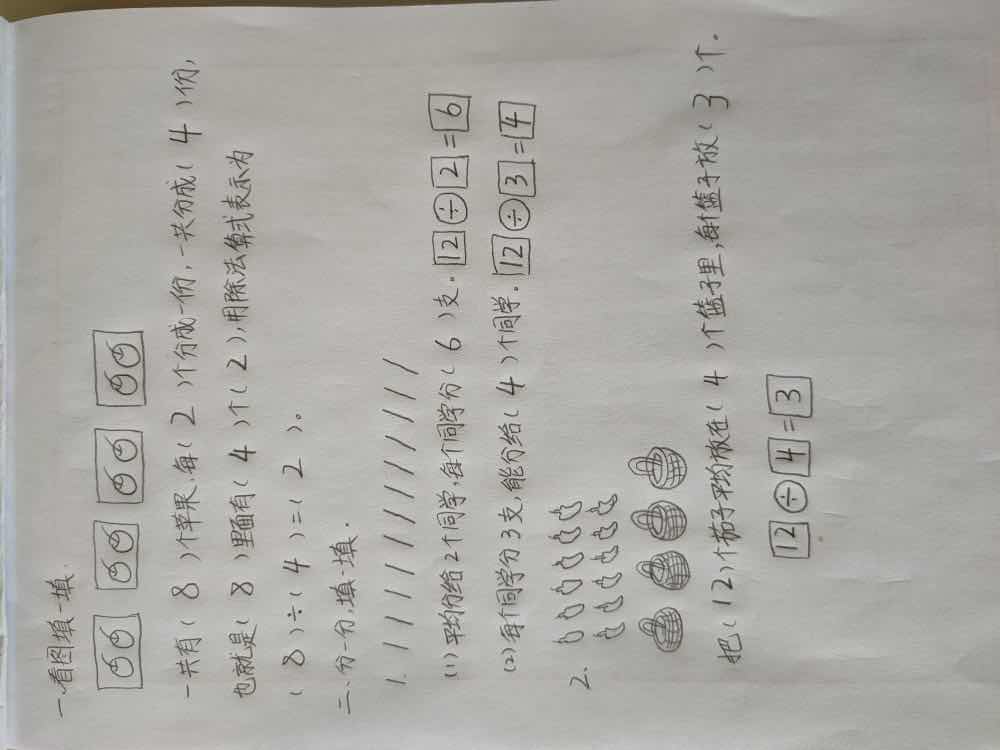 一.看图填一填.
一共有( 8 )个苹果,每( 2 )个分成一份,一共分成( 4 )份,
也就是( 8 )里面有( 4 )个( 2 ),用除法算式表示为
( 8 )÷( 4 )=( 2 )。
二、分一分,填一填.
1.
(1)平均分给2个同学,每个同学分( 6 )支. 12÷2=6
(2)每个同学分3支,能分给( 4 )个同学. 12÷3=4
2、
把(12)个茄子平均放在( 4 )个篮子里,每个篮子放( 3 )个.
12÷4=3